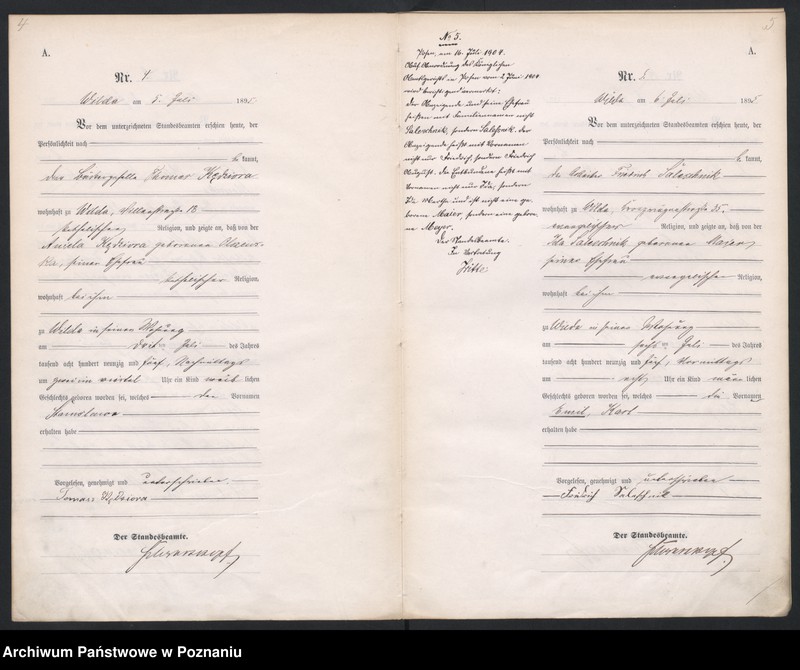 4
A.
Nr. 4.
Wilda am 5. Juli 1895
Vor dem unterzeichneten Standesbeamten erschien heute, der
Persönlichkeit nach
kannt,
Kędziora
wohnhaft zu Wilda,
katholischer Religion, und zeigte an, daß von der
Kędziora geborenen
seiner Ehefrau
katholischer Religion,
wohnhaft bei ihm
zu Wilda in seiner Wohnung
am dritten Juli des Jahres
tausend acht hundert neunzig und fünf, Nachmittags
um Uhr ein Kind weib lichen
Geschlechts geboren worden sei, welches den Vornamen
Stanislawa
erhalten habe
Vorgelesen, genehmigt und unterschrieben
Tomasz Kędziora
Der Standesbeamte.
No 5.
Posen, am 16. Juli 1904.
Auf Anordnung des Königlichen
Amtsgerichts in Posen vom 2. Juni 1904
wird berichtigend vermerkt:
der Anzeigende und seine Ehefrau
heißen mit Familiennamen nicht
Saleschnik, sondern
Anzeigende heißt mit Vornamen
nicht nur Friedrich, sondern Friedrich
August. Die Entbundene heißt mit
Vornamen nicht nur Ida, sondern
Ida Martha und ist nicht eine ge
borene Maier, sondern eine gebore
ne Mayer.
Der Standesbeamte.
In Vertretung
5
A.
Nr. 5
Wilda am 6. Juli 1895
Vor dem unterzeichneten Standesbeamten erschien heute, der
Persönlichkeit nach
kannt,
der Arbeiter Friedrich Saleschnik
wohnhaft zu Wilda, 35.
evangelischer Religion, und zeigte an, daß von der
Ida Saleschnik geborenen
seiner Ehefrau
evangelischer Religion,
wohnhaft bei ihm
zu Wilda in seiner Wohnung
am sechsten Juli des Jahres
tausend acht hundert neunzig und fünf, Vormittags
um acht Uhr ein Kind männ lichen
Geschlechts geboren worden sei, welches die Vornamen
Emil, Karl
erhalten habe
Vorgelesen, genehmigt und unterschrieben
Friedrich Saleschnik
Der Standesbeamte.
Archiwum Państwowe w Poznaniu